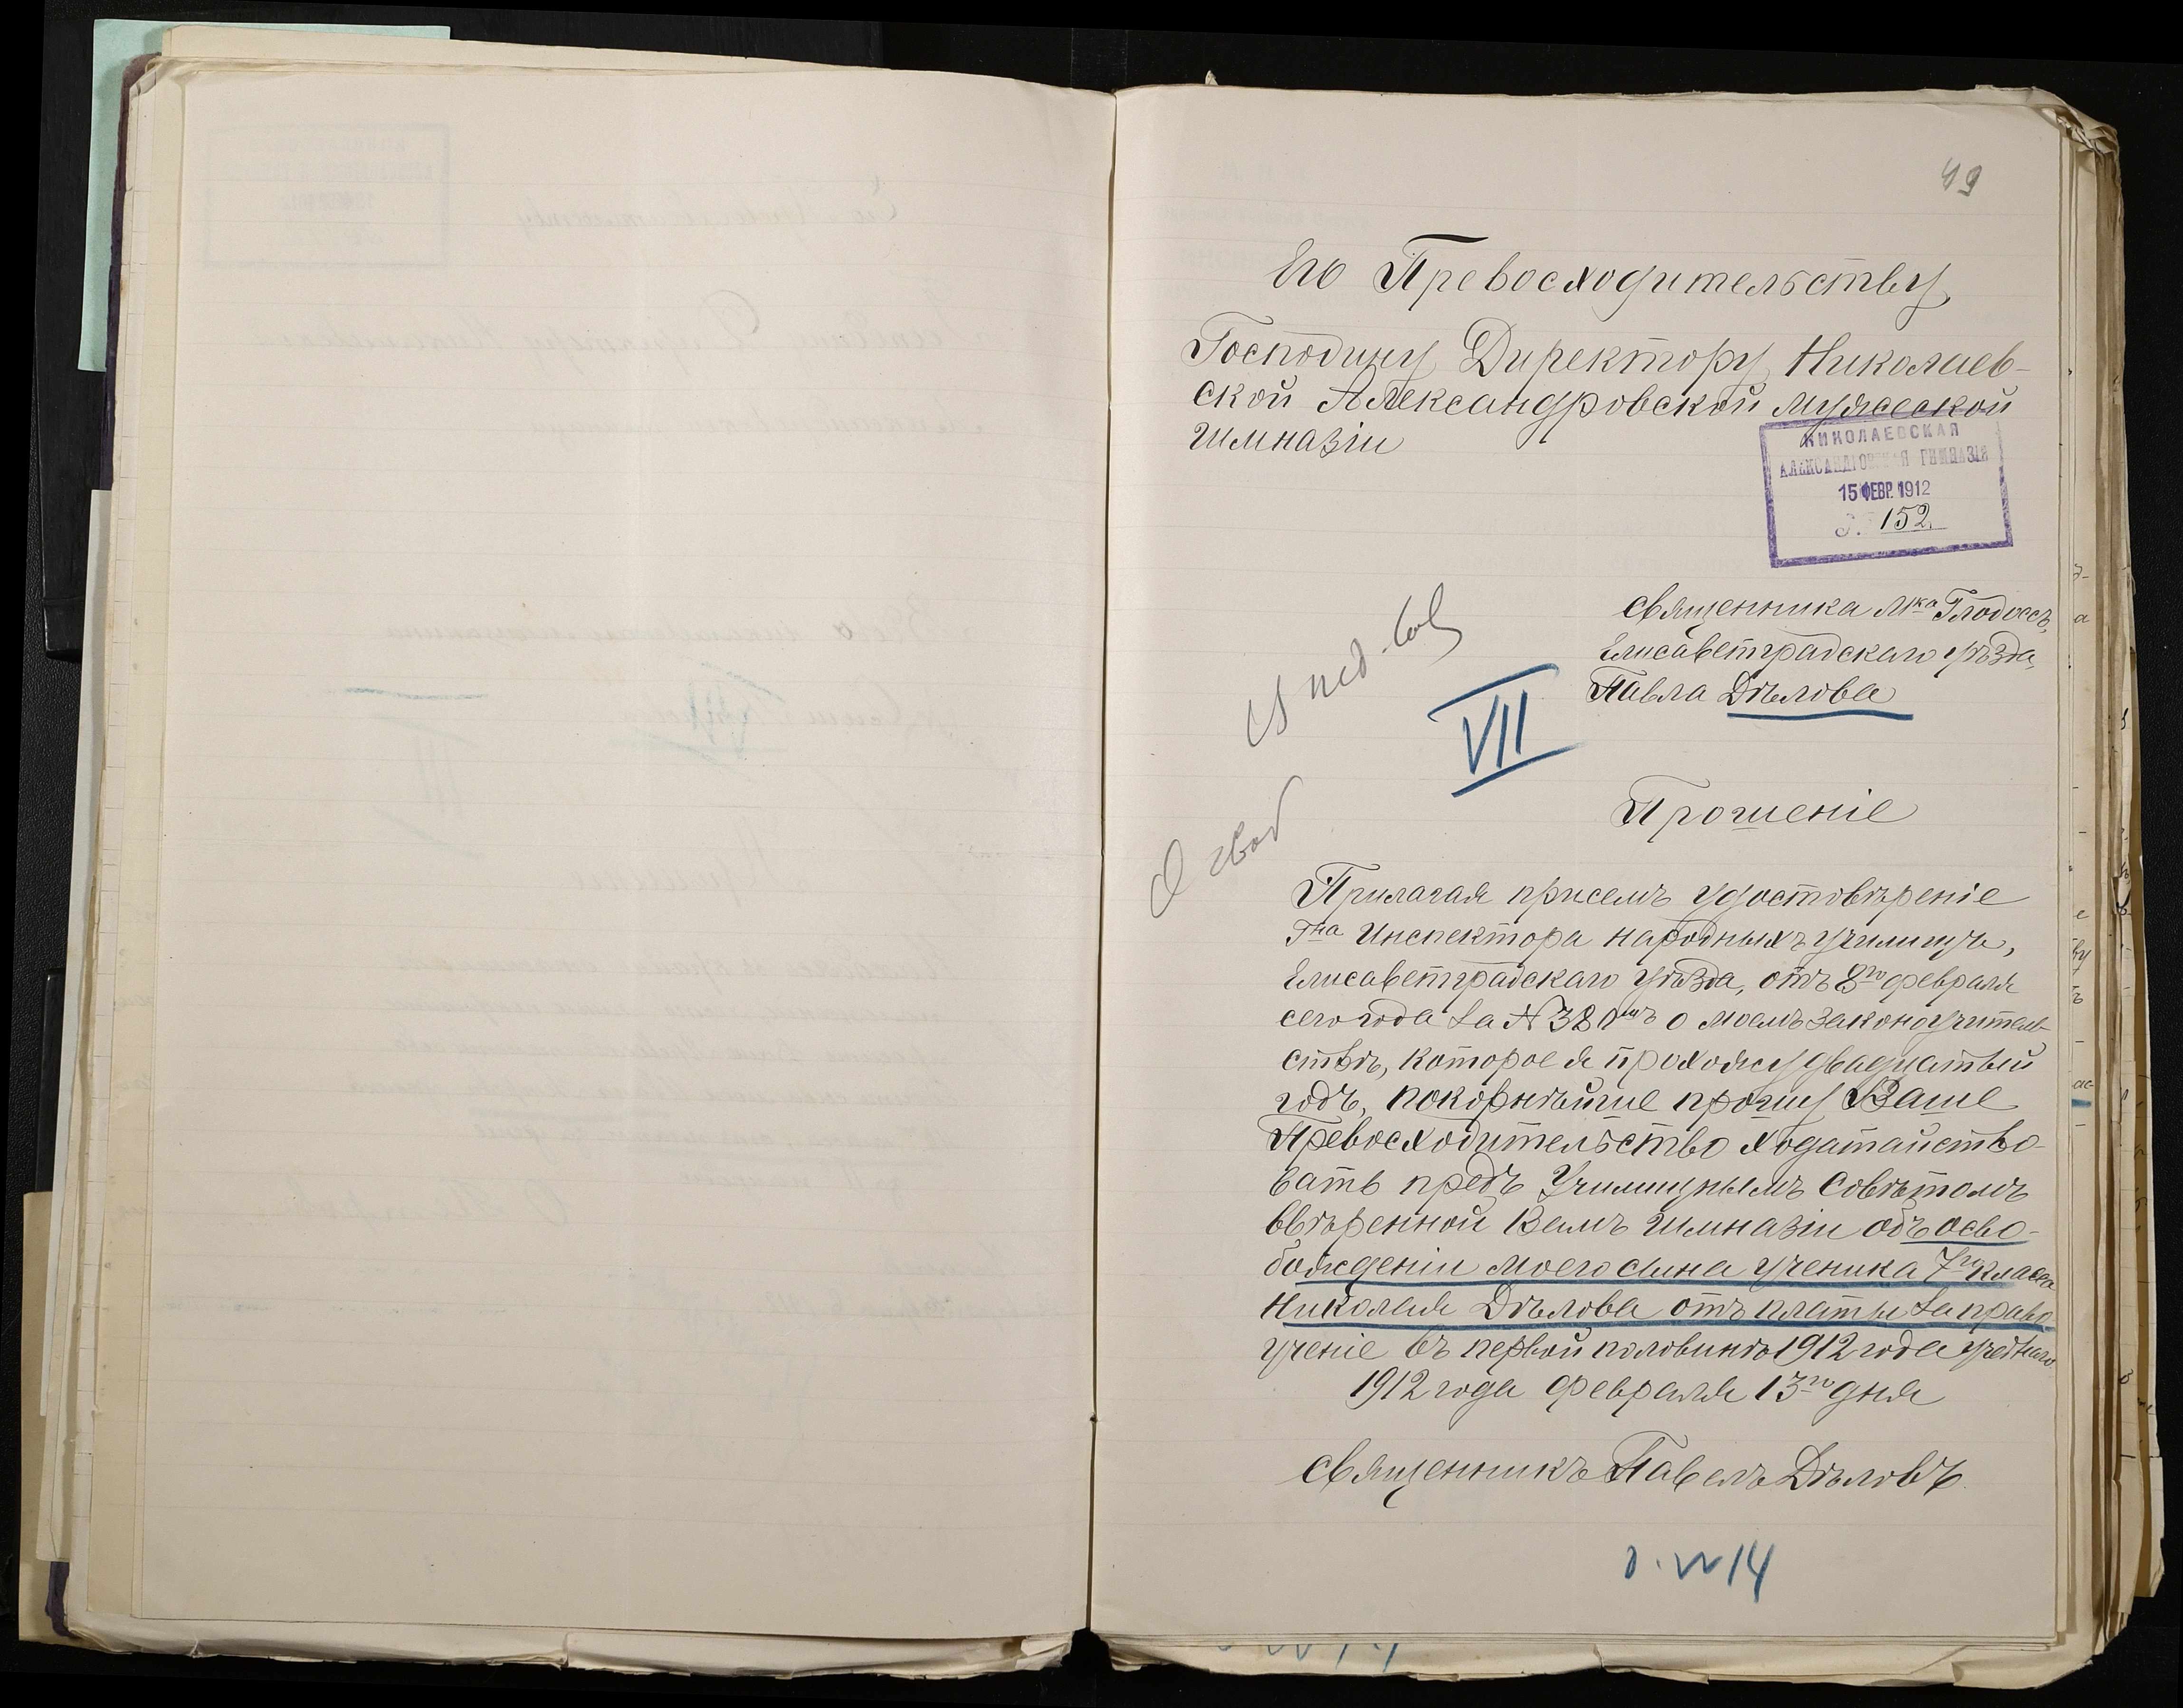 49
Его Превосходительству
Господину Директору Николаев-
ской Александровской мужской
гимназіи
НИКОЛАЕВСКАЯ
АЛЕКСАНДРОВСКАЯ ГИМНАЗІЯ
15 ФЕВР. 1912
152.
священника мка Глодоссъ,
Елисаветградскаго уѣзда,
Павла Дѣлова
VII
Прошеніе
Прилагая присемъ удостовѣреніе
Гна Инспектора народныхъ училищъ,
Елисаветградскаго уѣзда, отъ 8го февраля
сего года за № 380мъ о моемъ законоучитель-
ствѣ, которое я прохожу двадцатый
годъ, покорнѣйше прошу Ваше
Превосходительство ходатайство-
вать предъ Училищнымъ Совѣтомъ
ввѣренной Вамъ гимназіи объ осво-
божденіи моего сына ученика 7го класса
Николая Дѣлова отъ платы за право
ученіе въ первой половинѣ 1912 года
1912 года февраля 13го дня
священникъ Павелъ Дѣловъ.
№ 14